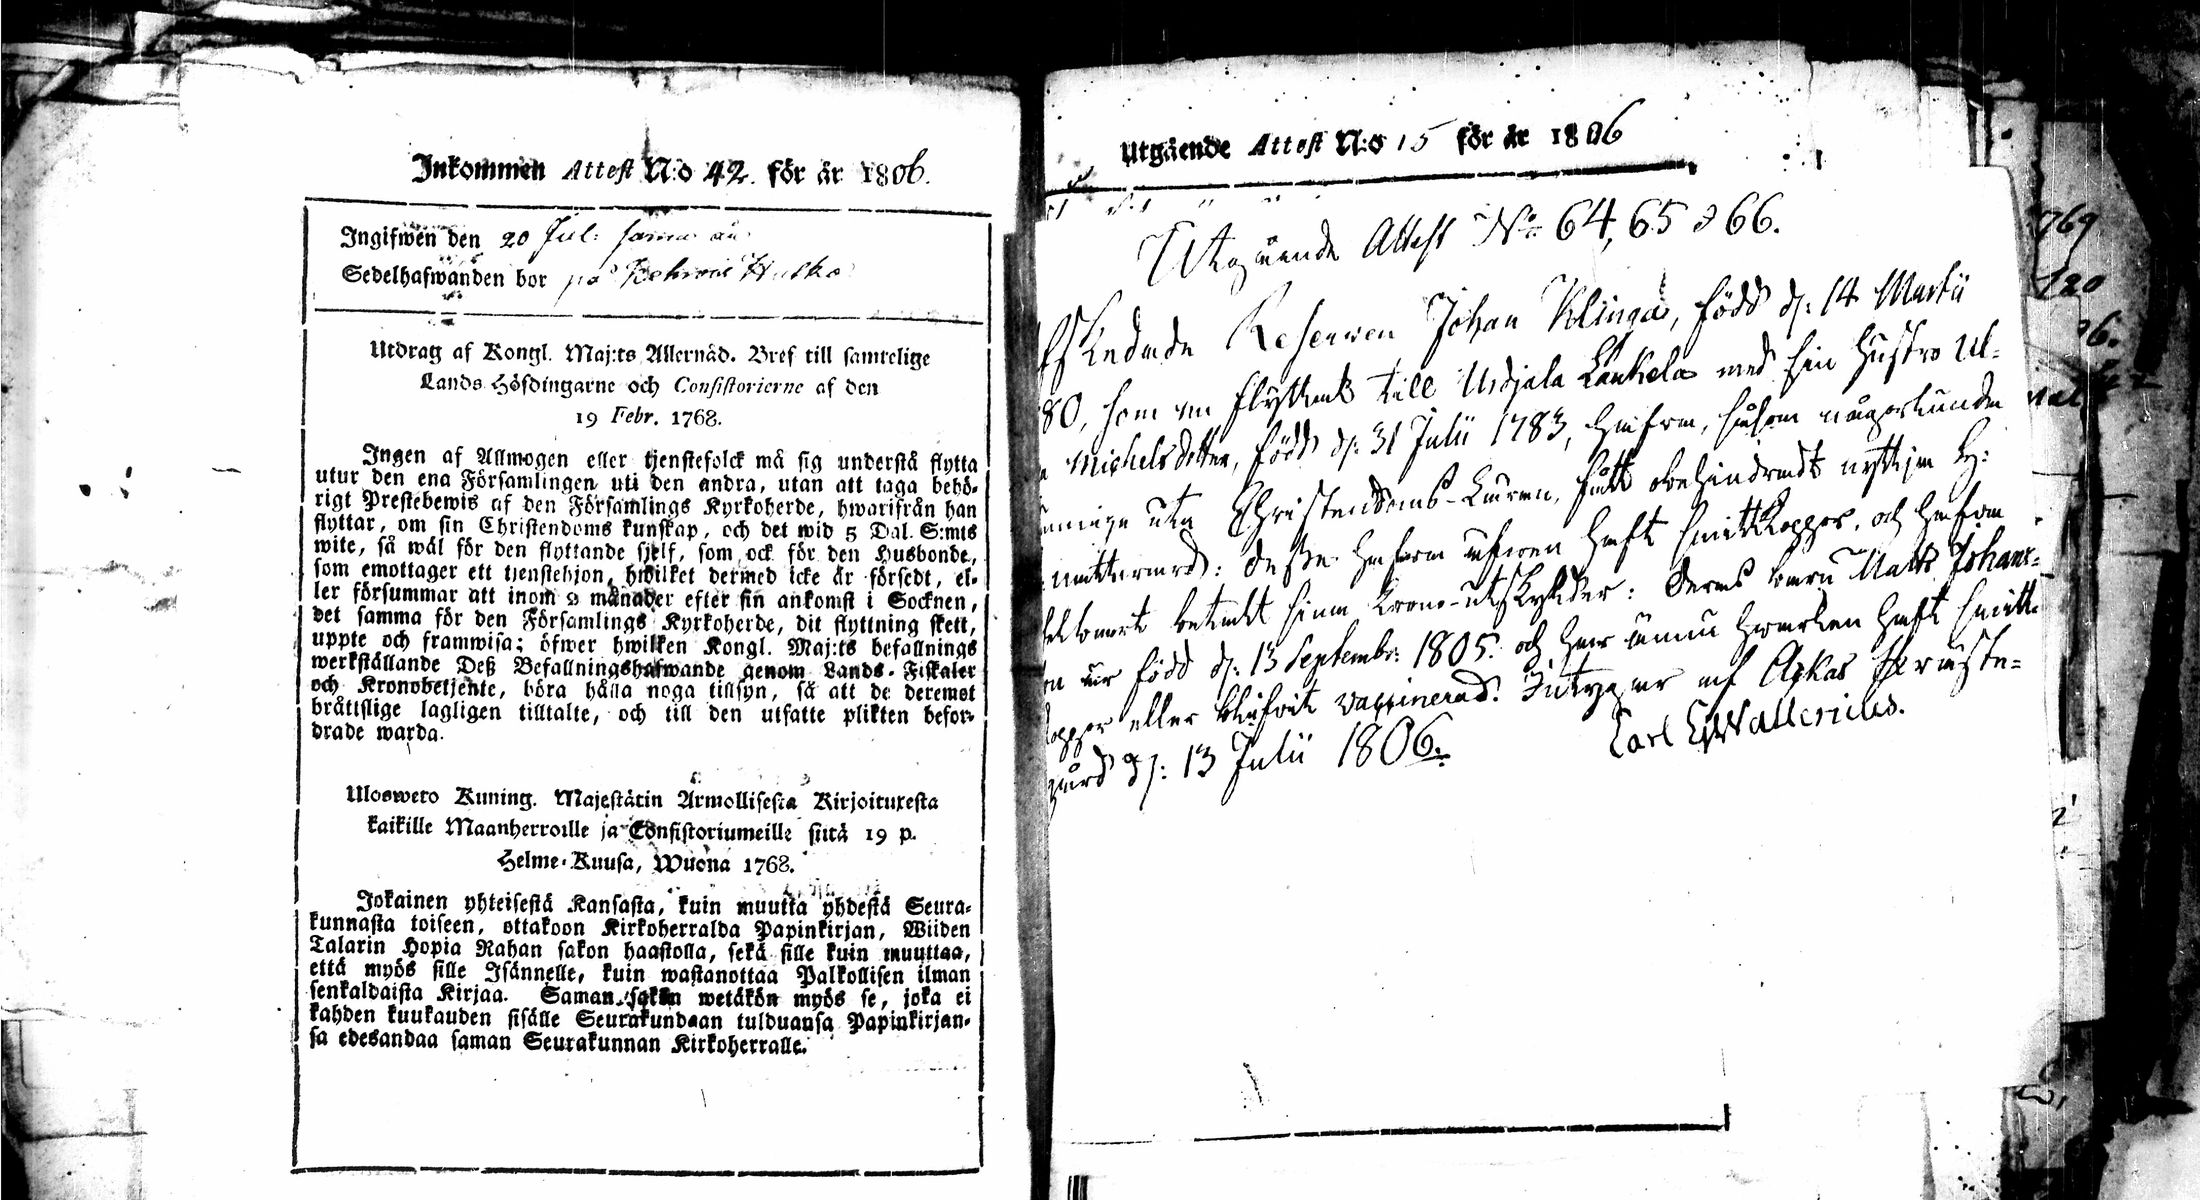 Inkommen Attest N:o 42. för år 1806.
Ingifwen den 20 Jul: samma år
Sedelhafwanden bor på
Utdrag af Kongl. Maj:ts Allernåd. Bref till samtelige
Lands Höfdingarne och Consistorierne af den
19 Febr. 1768.
Ingen af Allmogen eller tjenstefolck må sig understå flytta
utur den ena Församlingen uti den andra, utan att taga behö-
rigt Prestebewis af den Församlings Kyrkoherde, hwarifrån han
flyttar, om sin Christendoms kunskap, och det wid 5 Dal. S:mts
wite, så wäl för den flyttande sjelf, som ock för den Husbonde,
som emottager ett tjenstehjon, hwilket dermed icke är försedt, el-
ler försummar att inom 2 månader efter sin ankomst i Socknen,
det samma för den Församlings Kyrkoherde, dit flyttning skett,
uppte och framwisa; öfwer hwilken Kongl. Maj:ts befallnings
werkställande Deß Befallningshafwande genom Lands-Fiskaler
och Kronobetjente, böra hålla noga tillsyn, så att de deremot
bråttslige lagligen tilltalte, och till den utsatte plikten befor-
drade warda.
Ulosweto Kuning. Majestätin Armollisesta Kirjoituxesta
kaikille Maanherroille ja Consistoriumeille siitä 19 p.
Helme-Kuusa, Wuona 1768.
Jokainen yhteisestä Kansasta, kuin muutta yhdestä Seura-
kunnasta toiseen, ottakoon Kirkoherralda Papinkirjan, Wiiden
Talarin Hopia Rahan sakon haastolla, sekä sille kuin muuttaa,
että myös sille Isännelle, kuin wastanottaa Palkollisen ilman
senkaldaista Kirjaa. Saman sakon wetäkön myös se, joka ei
kahden kuukauden sisälle Seurakundaan tulduansa Papinkirjan-
sa edesandaa saman Seurakunnan Kirkoherralle.
Utgående Attest N:o 15 för år 1806
Utgående Attest No 64, 65 & 66.
Afskedade Reserven Johan Klinga, född d: 14 Martii
80, som nu flyttat till Urdjala Laukela med sin hustro Ul-
a Michelsdotter, född d: 31 Julii 1783, hafwa, såsom någorlunda
kunnige uti Christendoms-Läran, fått obehindradt nyttja H:
Nattward: Desse hafwa äfwen haft Smittkoppor, och hafwa
betalt sina Krono-utskylder: Deras barn Matts Johans-
son är född d: 13 Septembr: 1805. och har ännu hwarken haft Smitt-
koppor eller blifwit vaccinerad. Intygar af Ackas Präste-
gård d: 13 Julii 1806.
Carl E Wallerius.
769
120